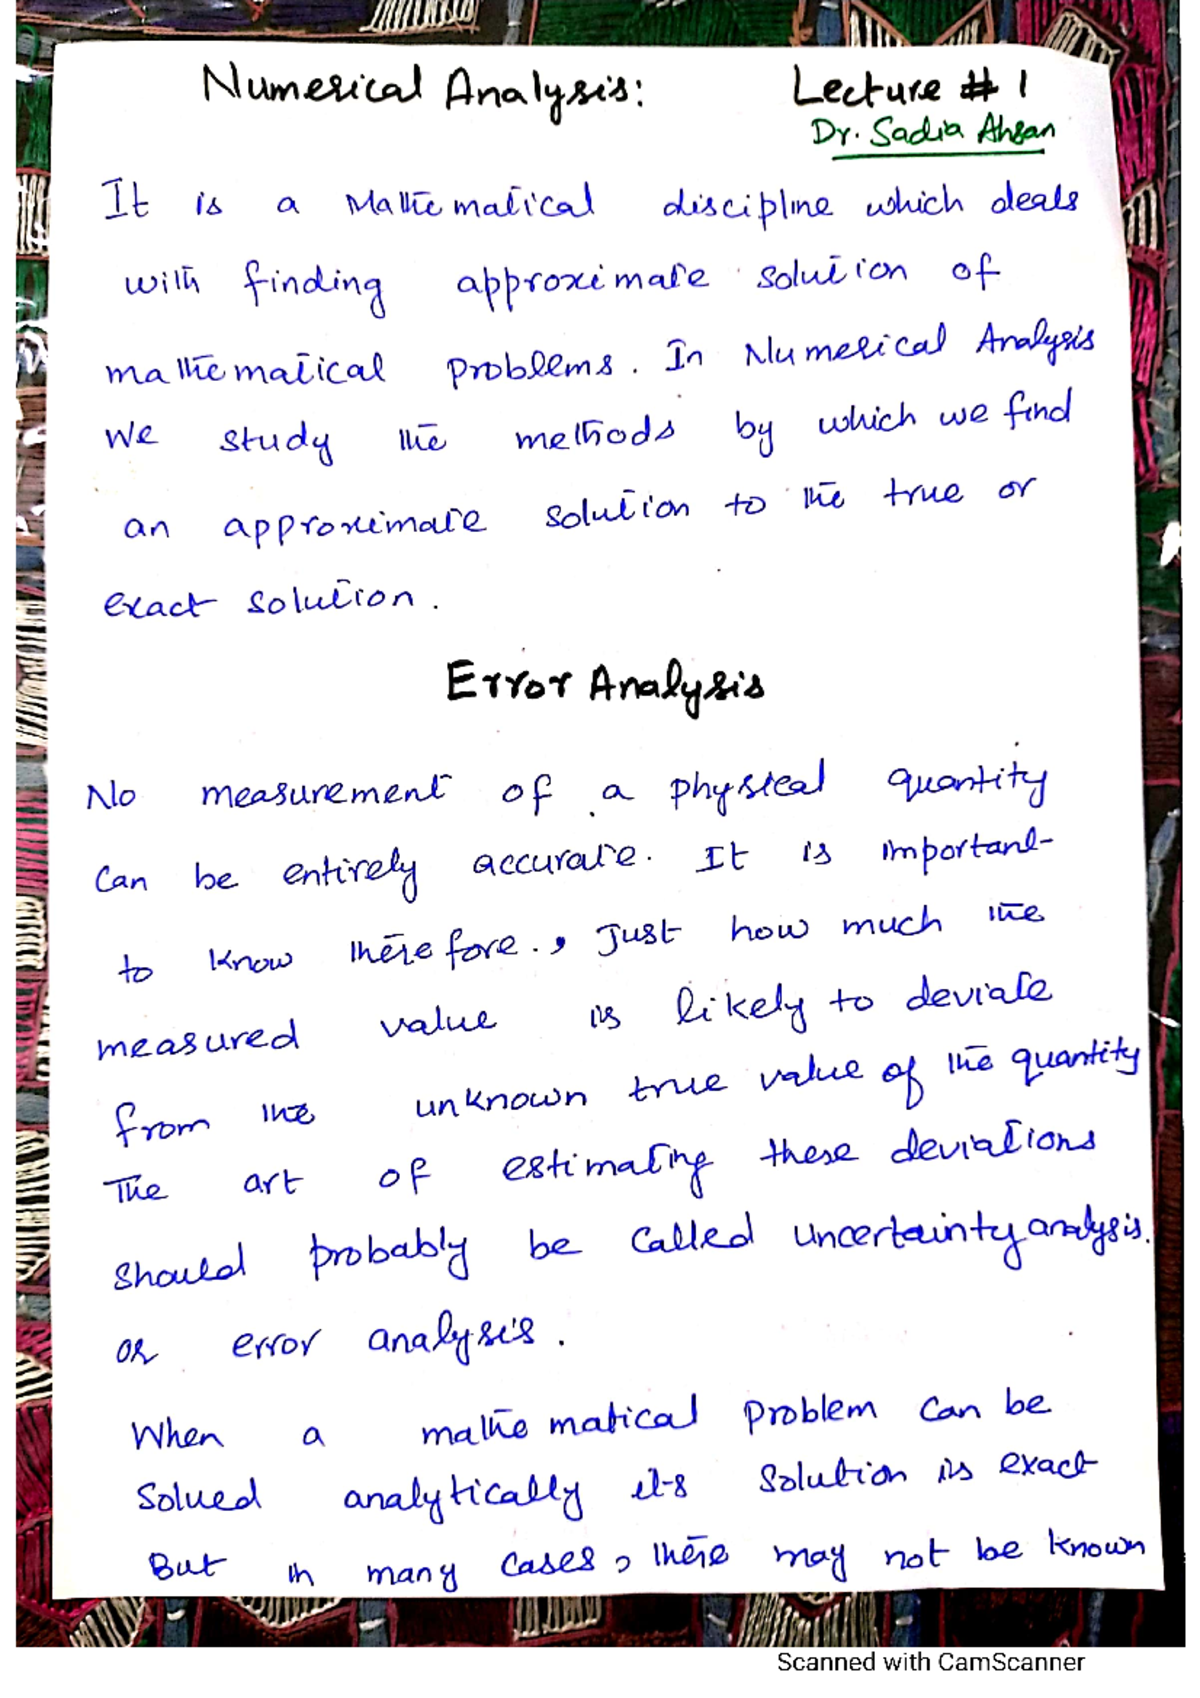 Numerical Analysis: Lecture # 1
Dr. Sadia Ahsan
It is a Mathematical discipline which deals
with finding approximate solution of
mathematical problems. In Numerical Analysis
We study the methods by which we find
an approximate solution to the true or
exact solution.
Error Analysis
No measurement of a physical quantity
Can be entirely accurate. It is important
to know therefore., Just how much the
measured value is likely to deviate
from the unknown true value of the quantity
The art of estimating these deviations
should probably be called uncertainty analysis.
or error analysis.
When a mathematical problem can be
Solved analytically its solution is exact
But in many cases, there may not be known
Scanned with CamScanner